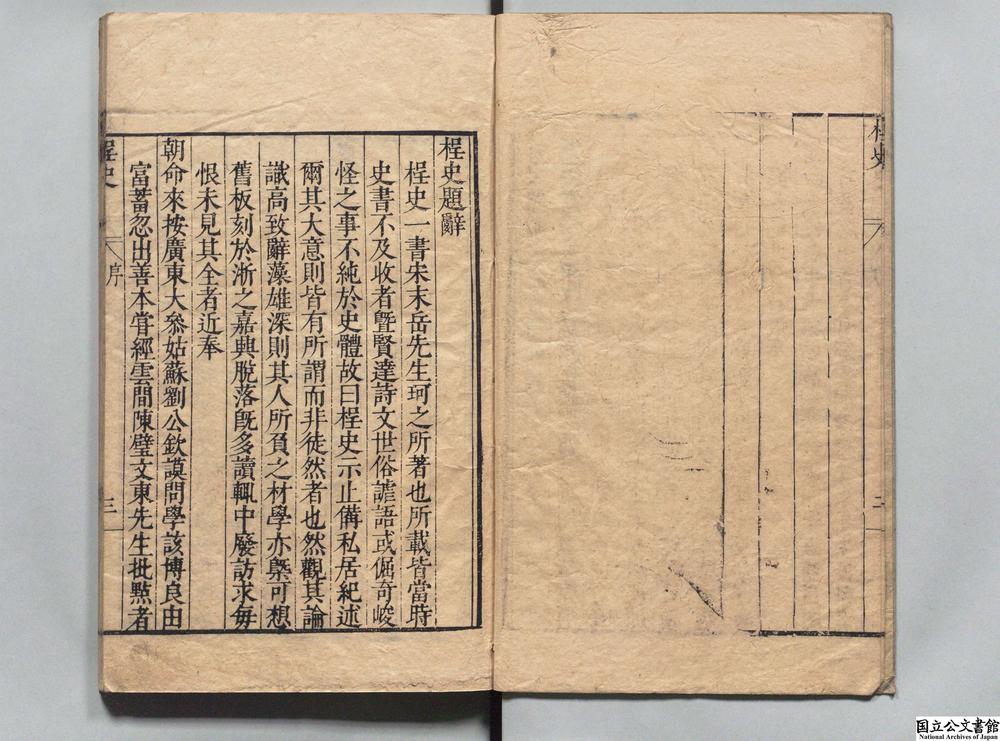 桯史
二
桯史題辭
桯史一書宋末岳先生珂之所著也所載皆當時
史書不及收者暨賢達詩文世俗謔語或倔奇峻
怪之事不純於史體故曰桯史示止備私居紀述
爾其大意則皆有所謂而非徒然者也然觀其論
議高致辭藻雄深則其人所負之材學亦槩可想
舊板刻於淅之嘉興脫落旣多讀輒中廢訪求每
恨未見其全者近奉
朝命來按廣東大叅姑蘇劉公欽謨問學該博良由
富蓄忽出善本甞經雲間陳璧文東先生批㸃者
桯史
序
三
国立公文書館
National Archives of Japan